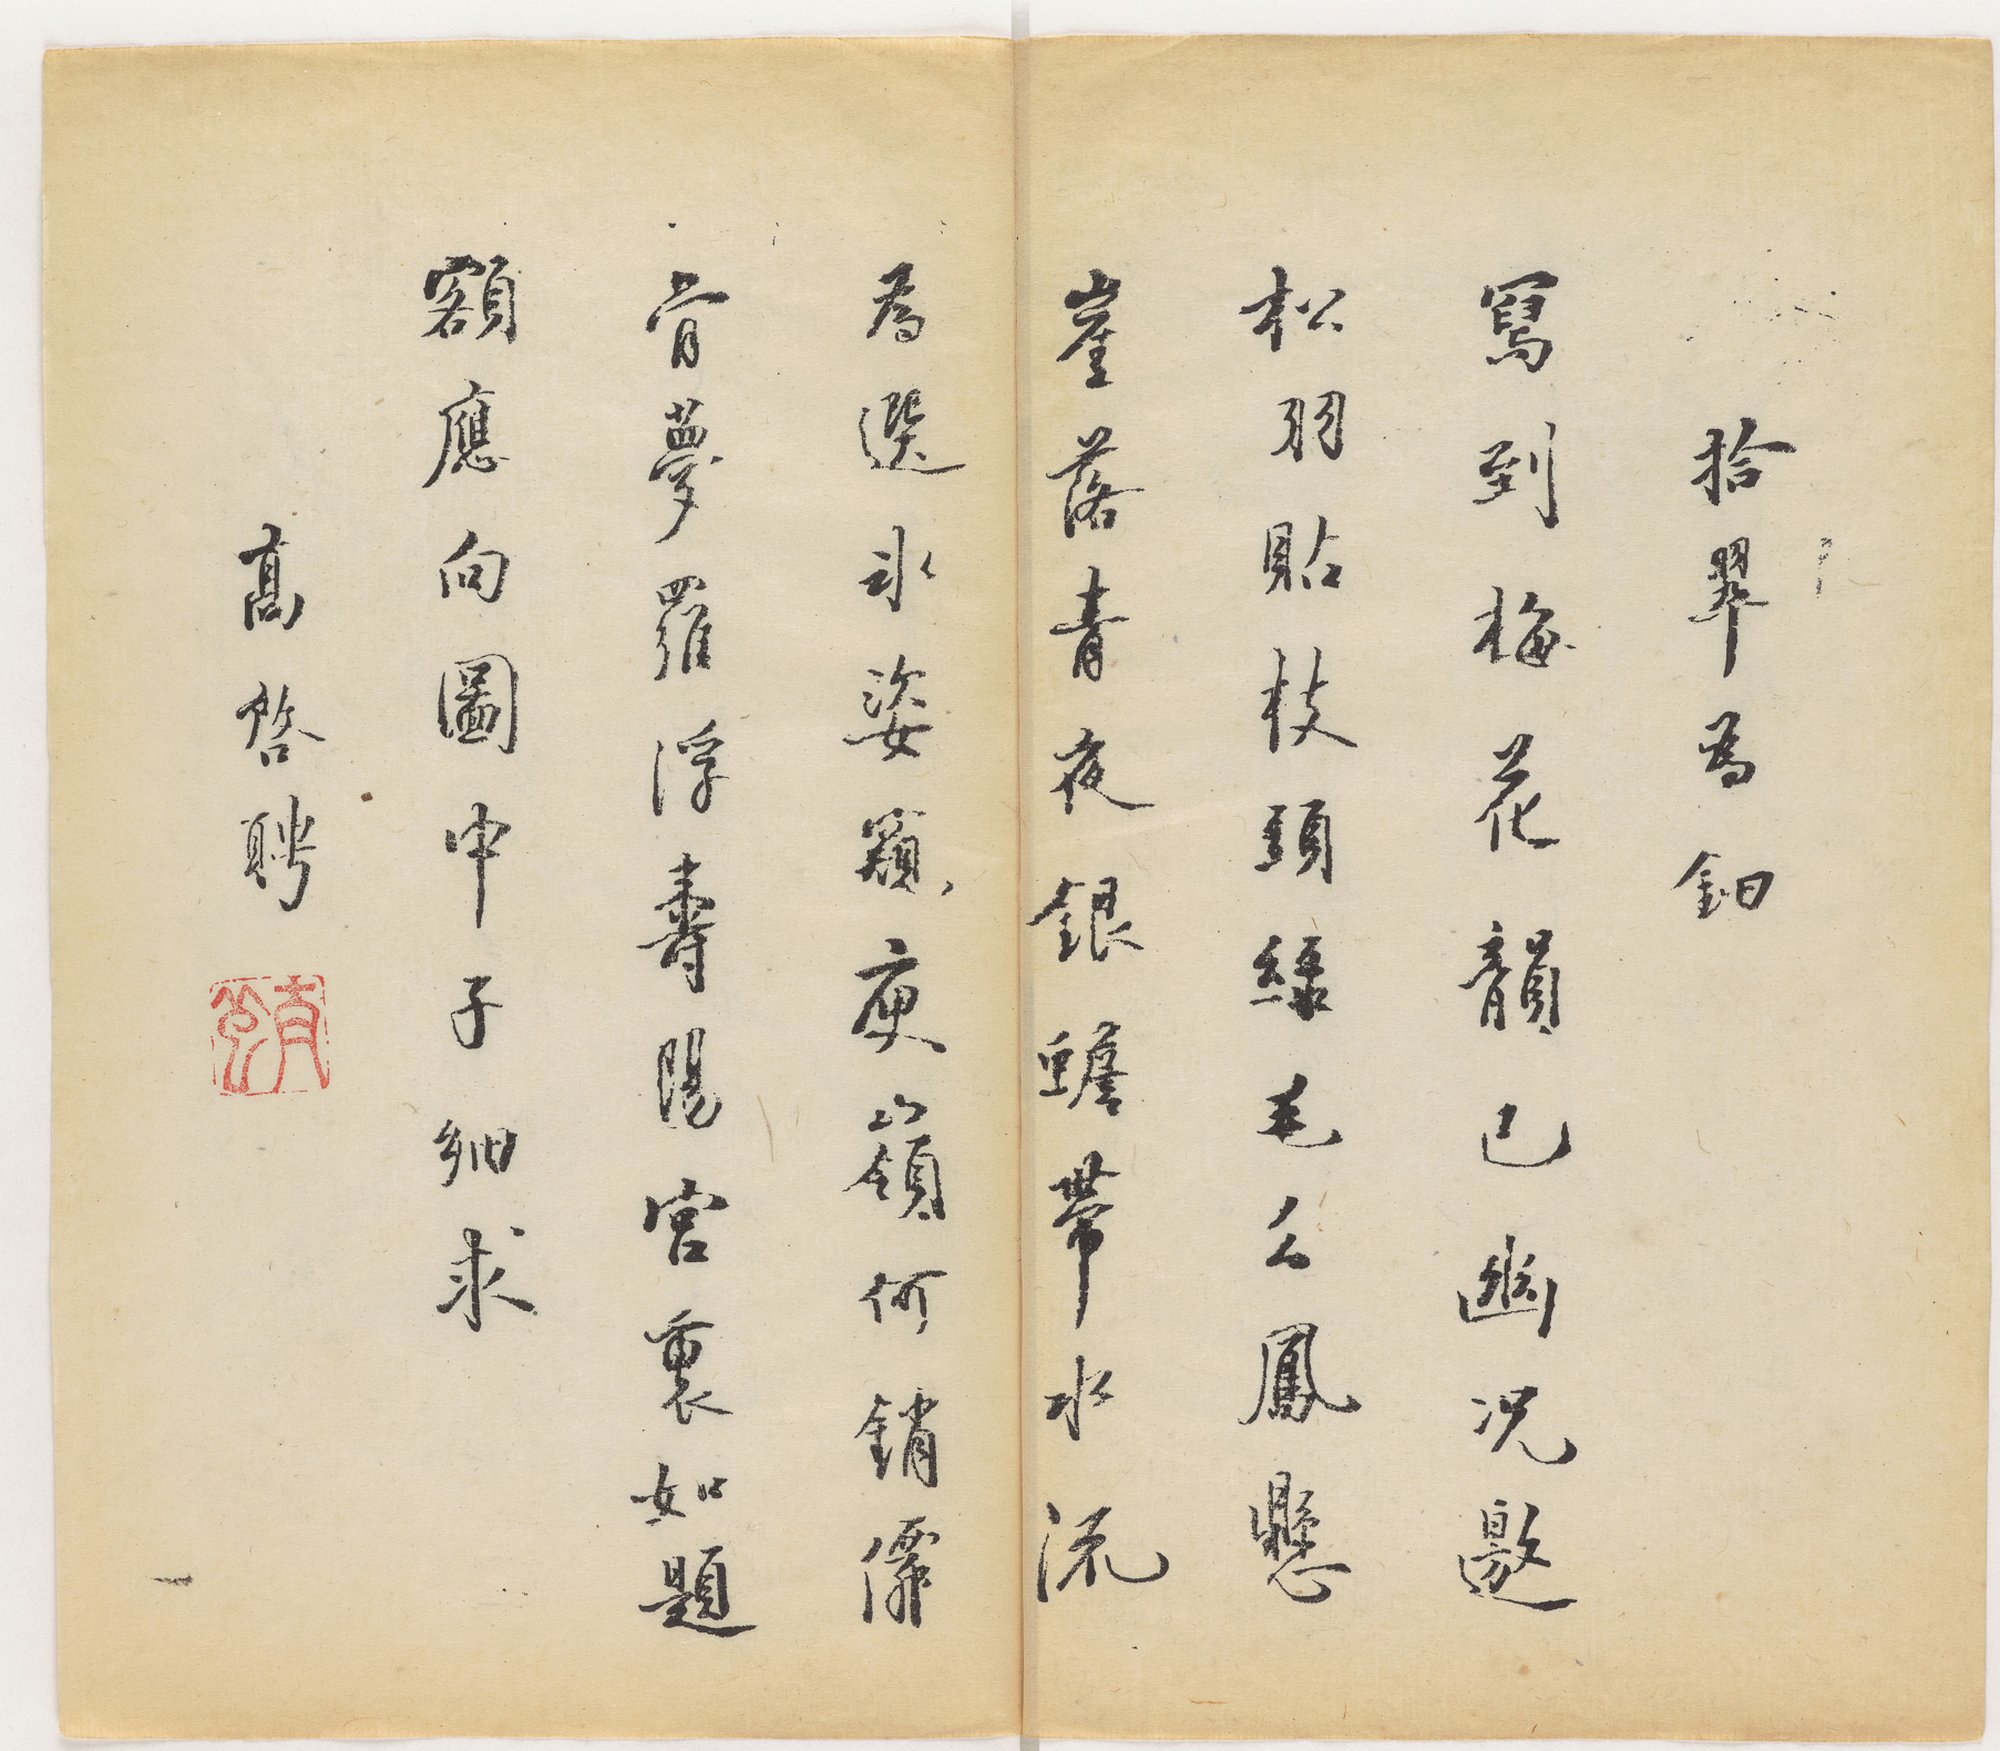 拾翠為鈿
寫到梅花韻已幽況邀
松羽貼枝頭綠毛么鳳懸
崖落青夜銀蟾帶水流
為選冰姿窺庾嶺何銷僊
骨夢羅浮壽陽宮裏如題
額應向圖中子細求
高啓聘